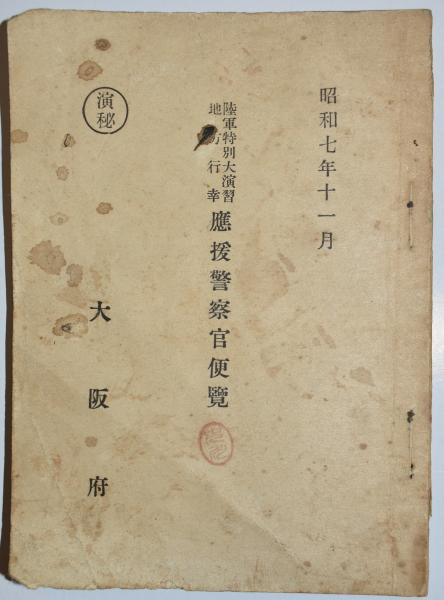 昭和七年十一月
陸軍特別大演習
地方行幸
應援警察官便覽
演秘
大阪府